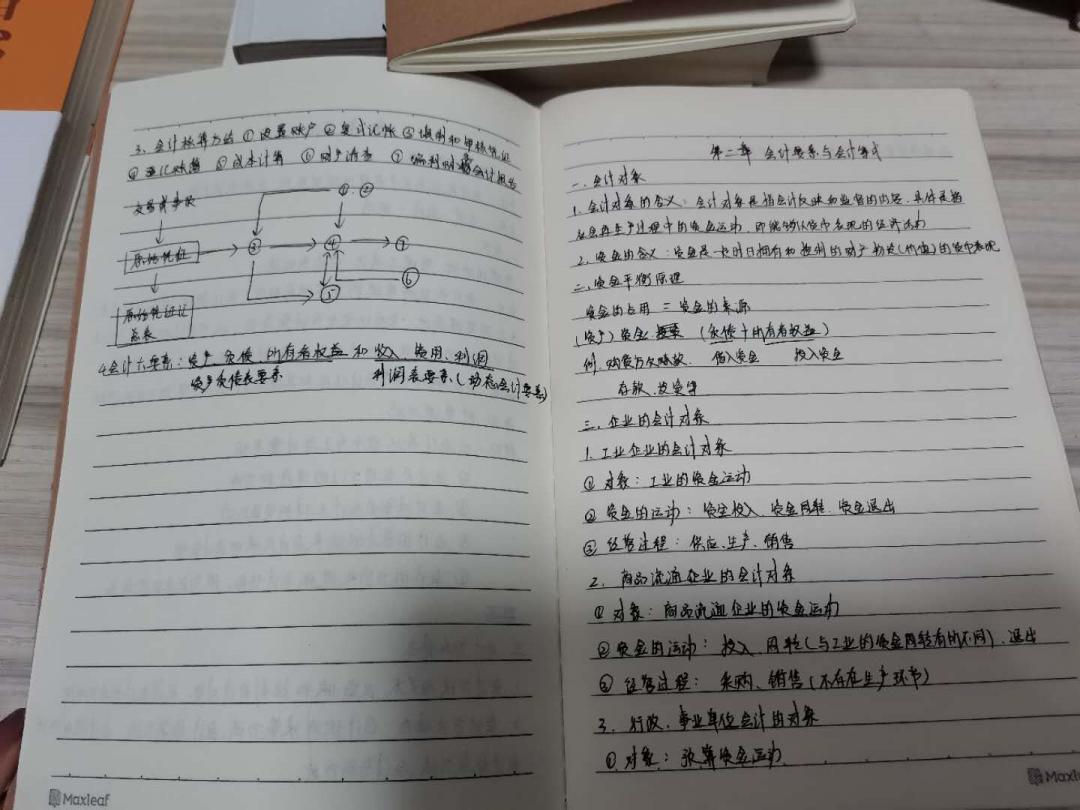 3、会计核算方法 ①设置账户 ②复式记帐 ③填制和审核凭证
④登记账簿 ⑤成本计算 ⑥财产清查 ⑦编制财务会计报告
交易或事故
①、②
原始凭证 ③ ④ ⑦
⑤ ⑥
原始凭证汇
总表
4会计六要素：资产 负债 所有者权益 和 收入、费用、利润
资产负债表要素 利润表要素(动态会计要素)
Maxleaf
第二章 会计要素与会计等式
一、会计对象
1、会计对象的含义：会计对象是指会计反映和监督的内容，具体是指
社会再生产过程中的资金运动，即能够以货币表现的经济活动
2、资金的含义：资金是一定时日拥有和控制的财产物资(价值)的货币表现
二、资金平衡原理
资金的占用 = 资金的来源
(资产) 资金 (负债+所有者权益)
例. 购货方欠账款 借入资金 投入资金
存款、投资等
三、企业的会计对象
1、工业企业的会计对象
① 对象：工业的资金运动
② 资金的运动：资金投入、资金周转、资金退出
③ 经营过程：供应、生产、销售
2、商品流通企业的会计对象
① 对象：商品流通企业的资金运动
②资金的运动：投入、周转(与工业的资金周转有所不同)、退出
③ 经营过程：采购、销售(不存在生产环节)
3、行政、事业单位会计的对象
① 对象：预算资金运动